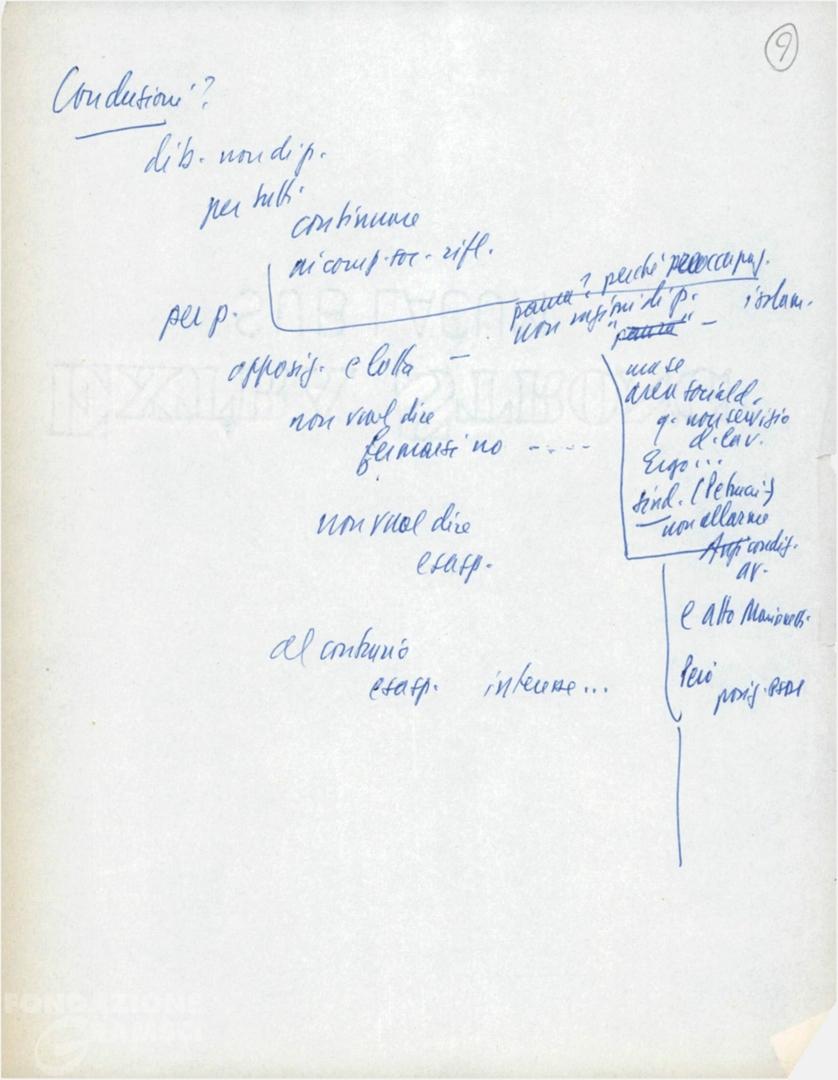 9
Conclusioni?
dib. non dip.
per tutti
continuare
ai comp. soc. rifl.
per p.
paura? perché preoccupaz.
isolam.
non ragioni di p.
"paura" -
opposiz. e lotta -
ma se
area sociald.
non vuol dire
q. non servizio
d. lav.
fermarsi no -----
Ergo...
sind. (Petrucci)
non allarme
non vuol dire
esasp.
condiz.
av.
e alto
al contrario
Però
esasp. intense...
posiz.
FONDAZIONE
GRAMSCI